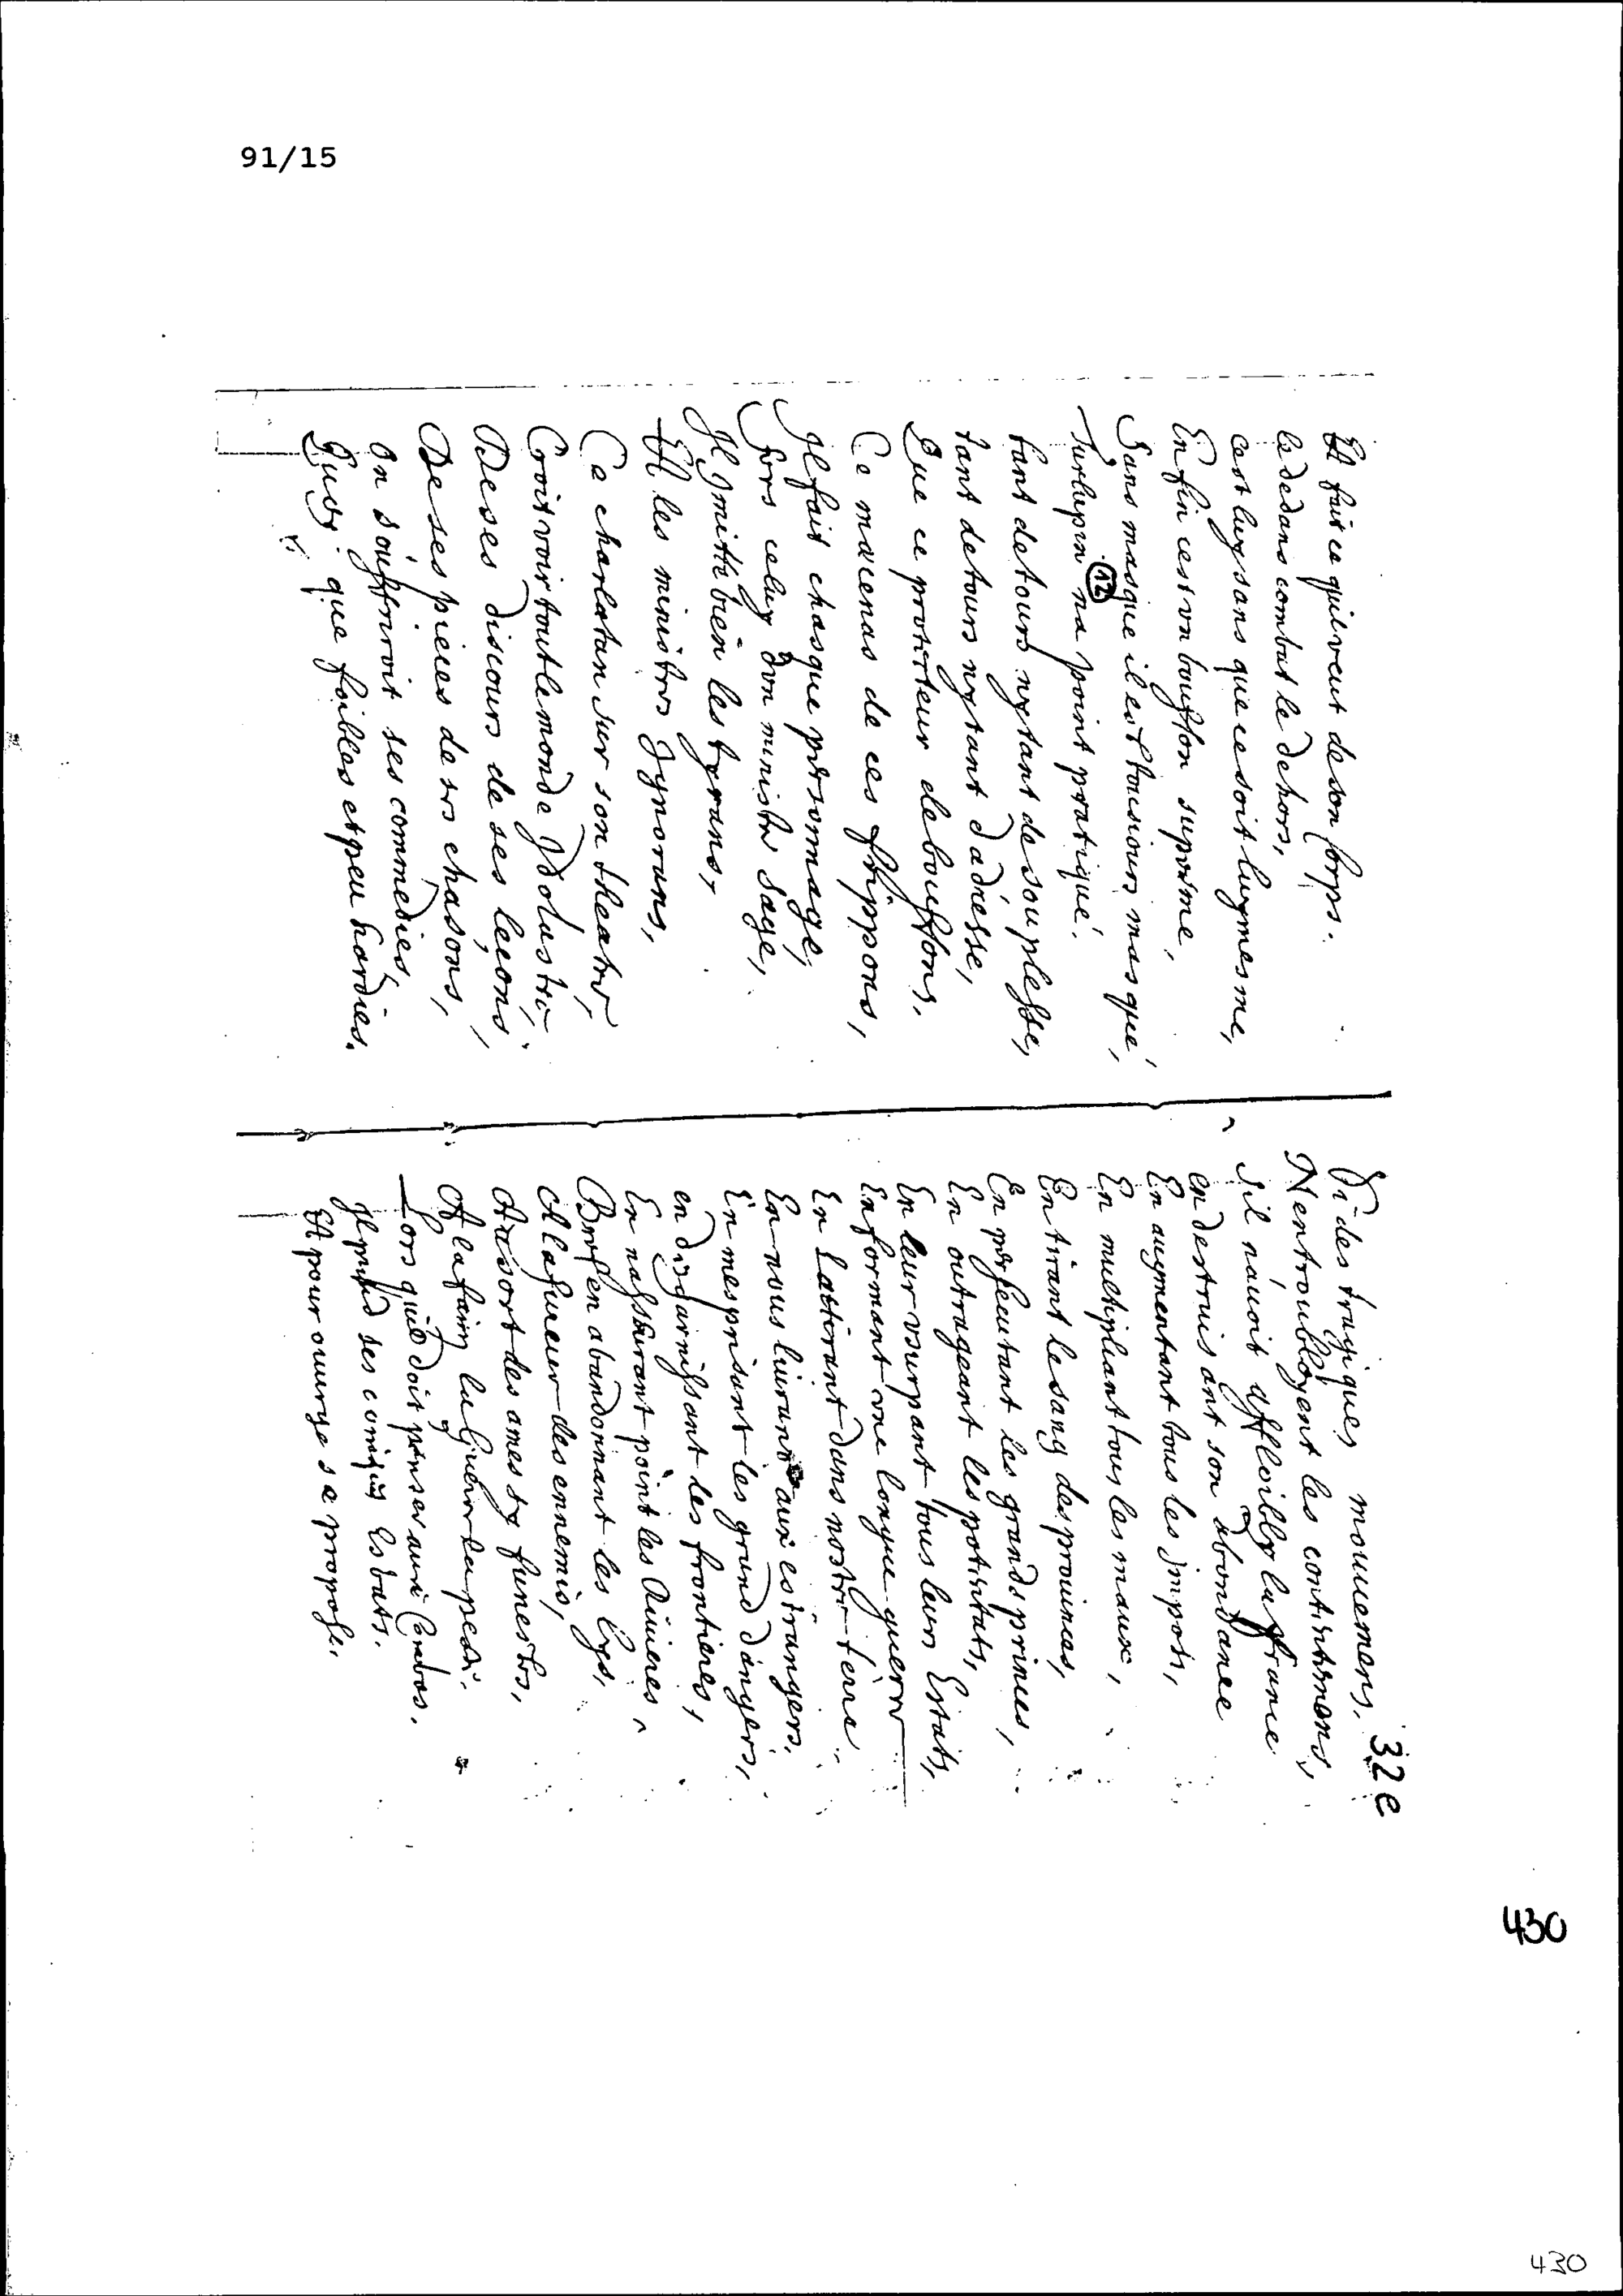 91/15
Et fait ce quil veut de son Corps.
le dedans combat le dehors,
cest luy sans que ce soit luymesme,
Enfin cest vn bouffon supresme,
Sans masque il est tousiours masqué,
Turlupin na point pratiqué.
12
tant de tours ny tant de souplesse,
tant detours ny tant dadresse,
Que ce protecteur de bouffons,
Ce mæcenas de ces frippons,
Il fait chasque personnage,
fors celuy dvn ministre sage,
Il Jmitte bien les tyrans,
Et les ministres Jgnorans,
Ce charlatan sur son theatre,
Croit voir tout le monde Jdolastre
De ses discours de ses leçons,
De ses pieces de ses chasons,
On souffriroit ses commedies,
Quoy que foibles et peu hardies.
32e
Si des tragiques mouuemens,
Nentroubloyent les contentemens,
Sil nauoit affloibly la france
en destruisant son abondance
En augmentant tous les Jmpots,
En multipliant tous les maux,
En tirant le sang des prouinces,
En persecutant les grands princes,
En outrageant les potentats,
En leur vsurpant tous leurs Estats,
En formant vne longue guerre
En lattirant dans nostre terre
En nous liurant aux estrangers.
En mesprisant les grand dangers,
en desgarnissant les frontieres,
En nasseurant point les Riuieres,
Bref en abandonnant les lys,
A la fureur des ennemis,
Au sort des armes sy funestes,
A la faim la guerre la peste.
Lors quil doit penser aux Combas.
Il prend ses comiques Esbats.
Et pour ouurage se propose,
430
430